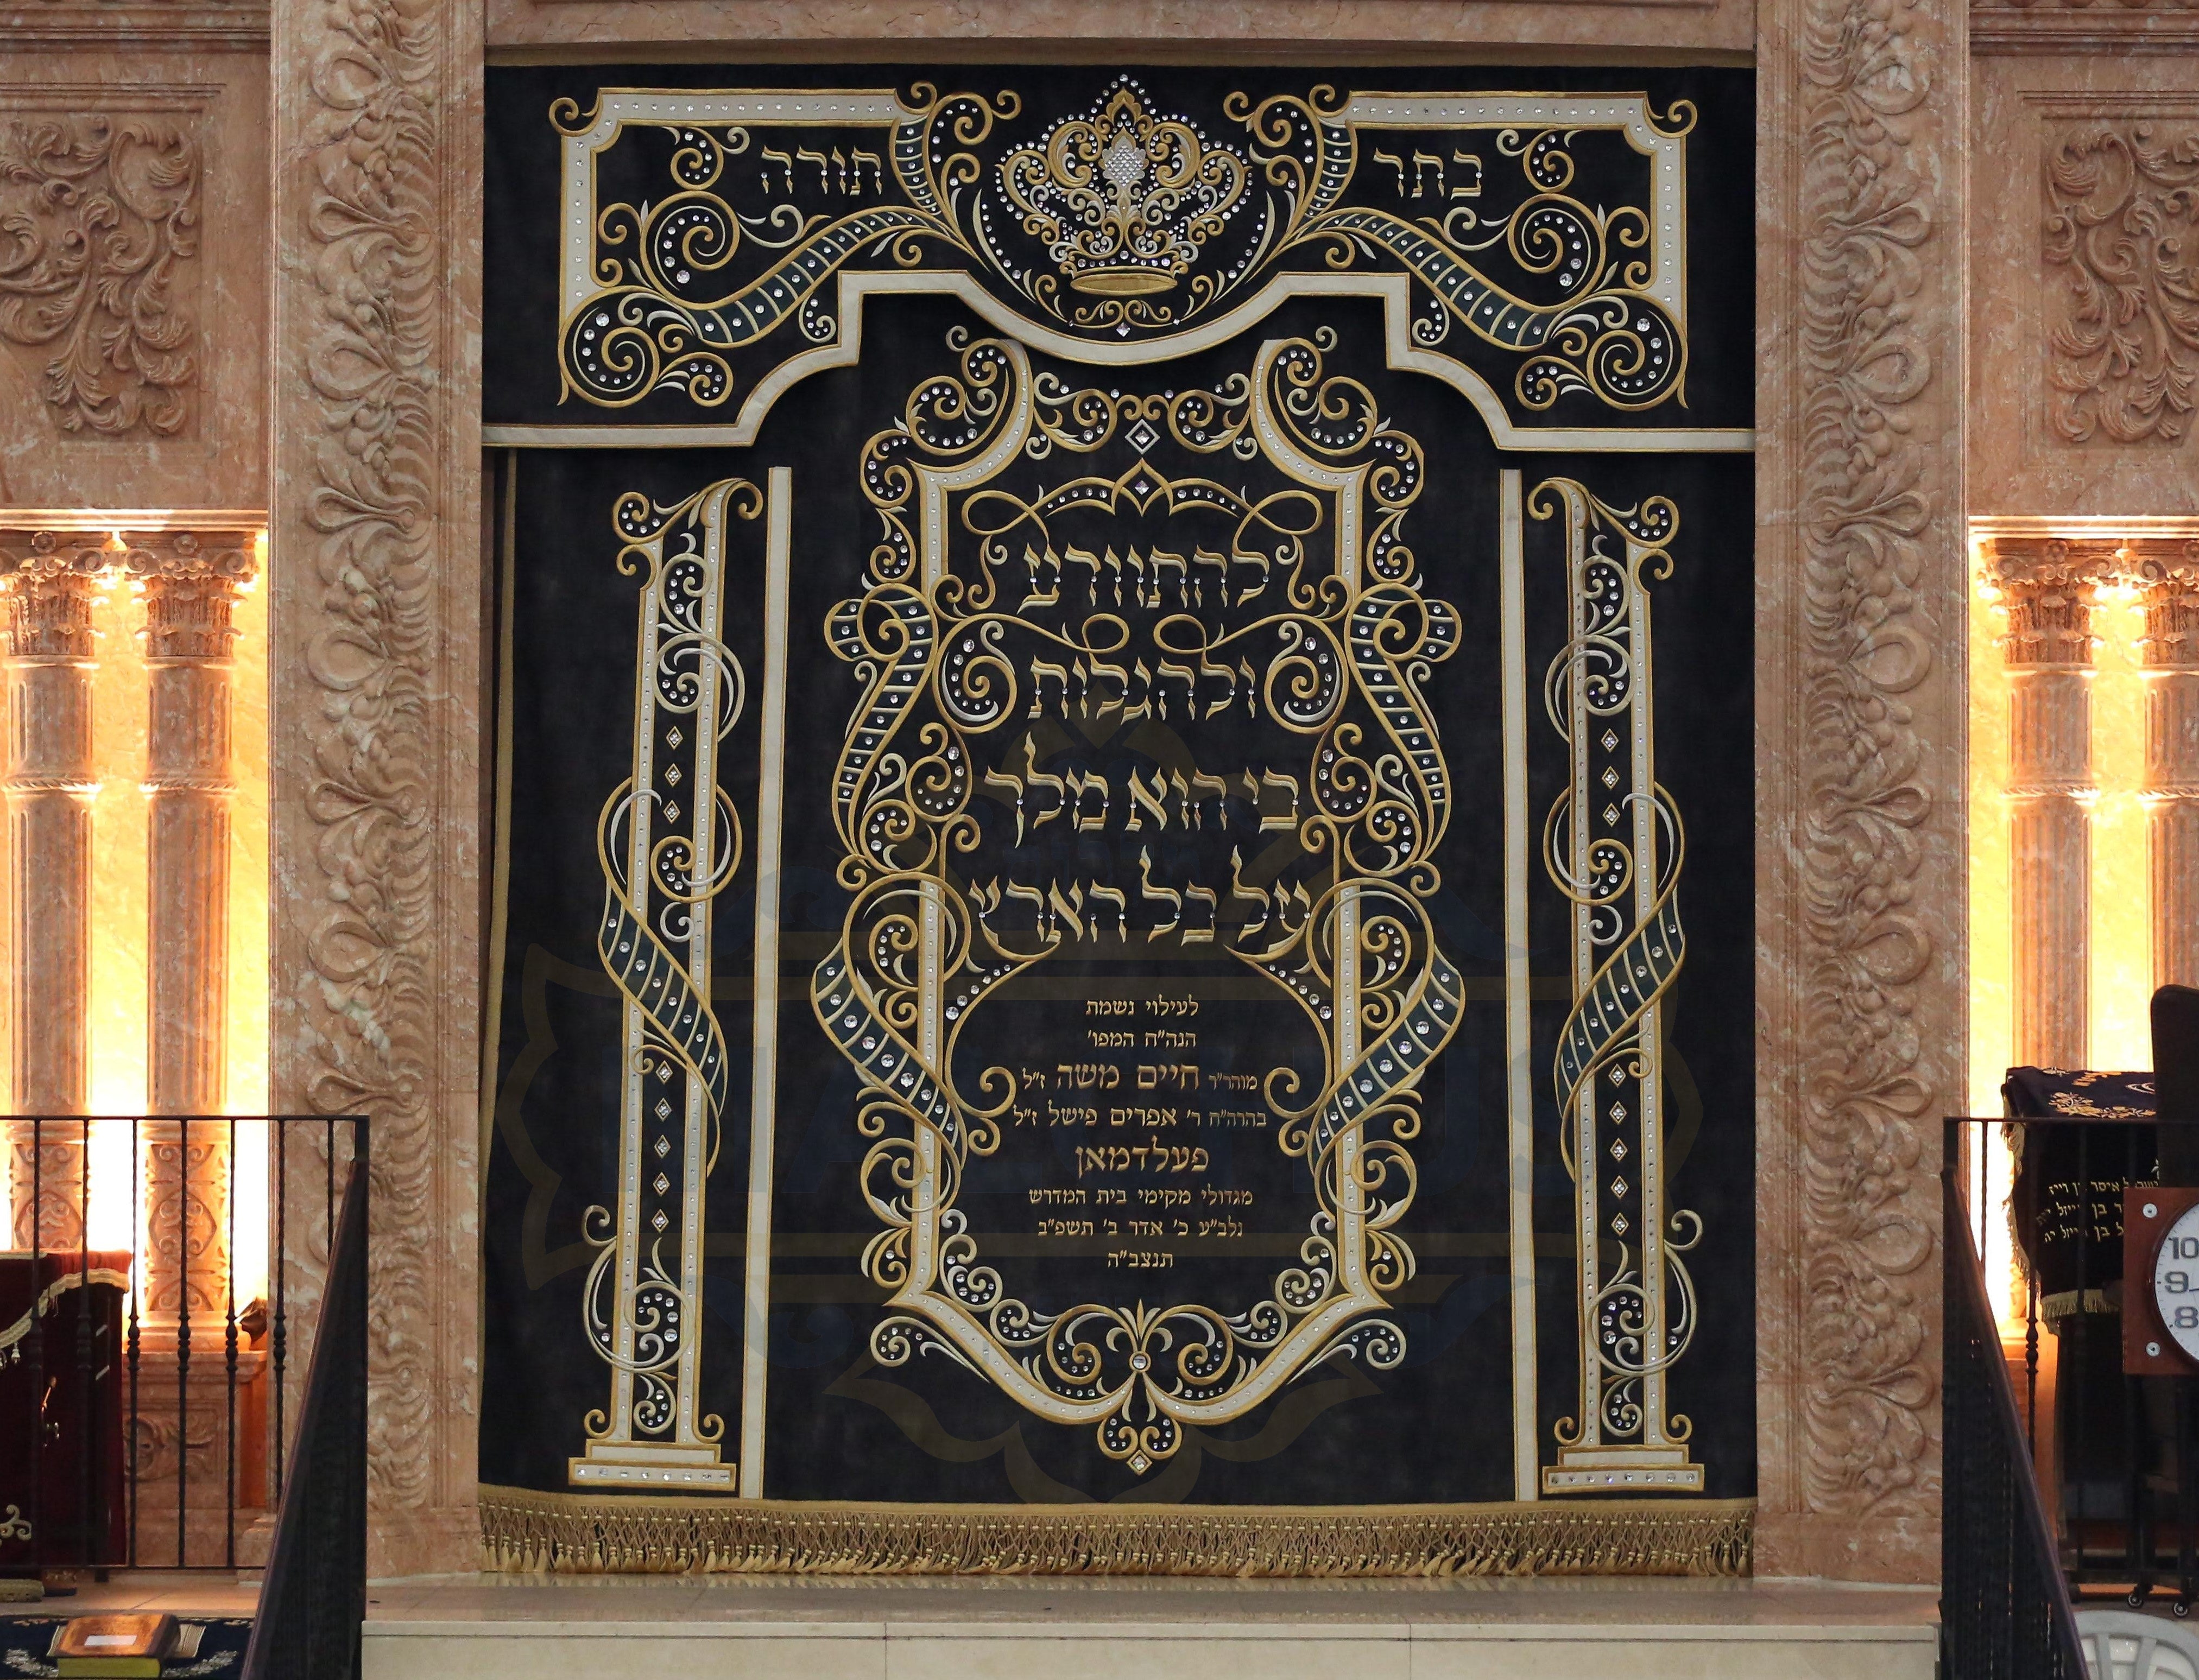 כתר תורה
להתוודע
ולהגלות
כי הוא מלך
על כל הארץ
לעילוי נשמת
הנה"ח המפו'
מוהר"ר חיים משה ז"ל
בהרה"ח ר' אפרים פישל ז"ל
פעלדמאן
מגדולי מקימי בית המדרש
נלב"ע כ' אדר ב' תשפ"ב
תנצב"ה
10
9
8